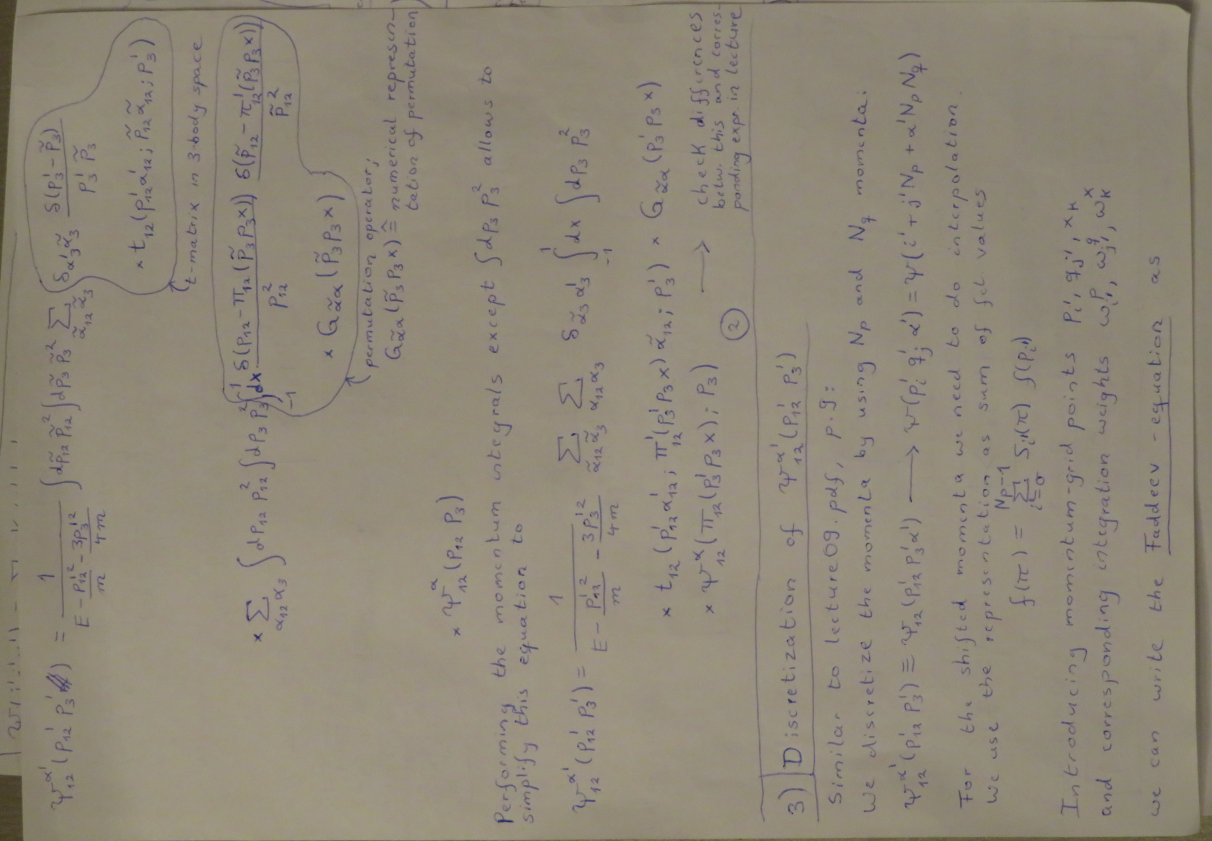 ψ₁₂^α'(p₁₂' p₃') = 1/(E - p₁₂'²/m - 3p₃'²/4m) ∫dp̃₁₂ p̃₁₂² ∫dp̃₃ p̃₃² Σ_{α̃₁₂ α̃₃} δ_{α̃₃' α̃₃} δ(p₃' - p̃₃)/(p₃' p̃₃)
× t₁₂(p₁₂' α₁₂'; p̃₁₂ α̃₁₂; p₃')
t-matrix in 3-body space
× Σ_{α₁₂ α₃} ∫dp₁₂ p₁₂² ∫dp₃ p₃² ∫₋₁¹ dx δ(p₁₂ - π₁₂(p̃₃ p₃ x))/p₁₂² δ(p̃₁₂ - π₁₂'(p̃₃ p₃ x))/p̃₁₂²
× G_{α̃α}(p̃₃ p₃ x)
permutation operator;
G_{α̃α}(p̃₃ p₃ x) ≙ numerical represen-
tation of permutation
× ψ₁₂^α(p₁₂ p₃)
Performing the momentum integrals except ∫dp₃ p₃² allows to
simplify this equation to
ψ₁₂^α'(p₁₂' p₃') = 1/(E - p₁₂'²/m - 3p₃'²/4m) Σ_{α̃₁₂ α̃₃} Σ_{α₁₂ α₃} δ_{α̃₃ α₃'} ∫₋₁¹ dx ∫dp₃ p₃²
× t₁₂(p₁₂' α₁₂'; π₁₂'(p₃' p₃ x) α̃₁₂; p₃') × G_{α̃α}(p₃' p₃ x)
× ψ₁₂^α(π₁₂(p₃' p₃ x); p₃)
② → check differences
betw. this and corres-
ponding expr. in lecture
3) Discretization of ψ₁₂^α'(p₁₂' p₃')
Similar to lecture09.pdf, p.9:
We discretize the momenta by using Np and Nq momenta:
ψ₁₂^α'(p₁₂' p₃') ≡ ψ₁₂(p₁₂' p₃' α') → ψ(p_i' q_j' α') = ψ(i' + j' Np + α' Np Nq)
For the shifted momenta we need to do interpolation.
We use the representation as sum of fct values
f(π) = Σ_{i=0}^{Np-1} S_i(π) f(p_i)
Introducing momentum-grid points p_i', q_j', x_k
and corresponding integration weights ω_i'^p, ω_j'^q, ω_k^x
we can write the Faddeev-equation as